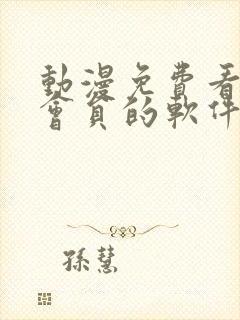 動漫免費看
會員的軟件
孫慧